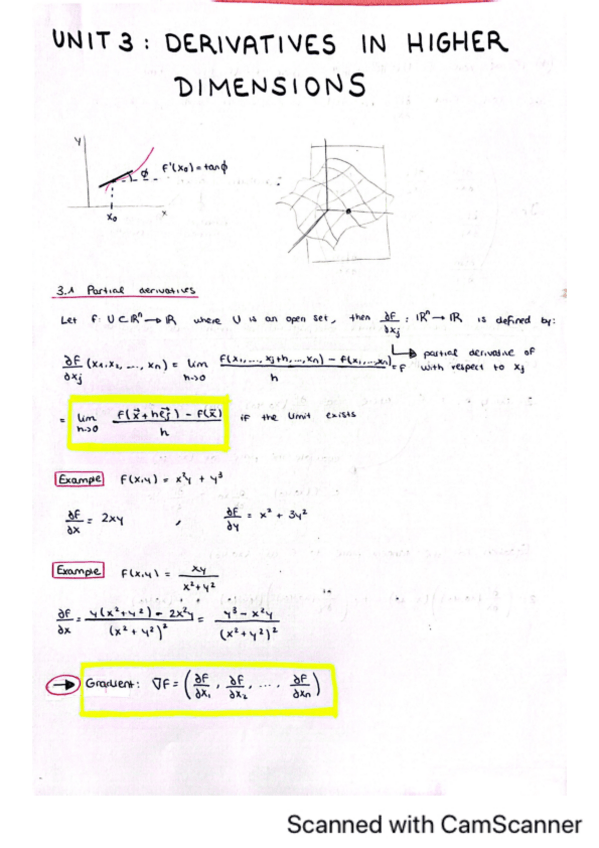 UNIT 3 : DERIVATIVES IN HIGHER
DIMENSIONS
y
ϕ
f'(x₀) = tanϕ
x₀
x
3.1 Partial derivatives
Let f: U⊂ℝⁿ → ℝ where U is an open set, then ∂f/∂xj : ℝⁿ → ℝ is defined by:
∂f/∂xj (x₁,x₂, ..., xn) = lim h→0 f(x₁,..., xj+h,..., xn) − f(x₁,...,xn) / h =
↳ partial derivative of
f with respect to xj
= lim h→0 f(x⃗ + he⃗j) − f(x⃗) / h if the limit exists
Example f(x,y) = x²y + y³
∂f/∂x = 2xy , ∂f/∂y = x² + 3y²
Example f(x,y) = xy / x²+y²
∂f/∂x = y(x²+y²) − 2x²y / (x² + y²)² = y³ − x²y / (x²+y²)²
→ Gradient: ∇f = (∂f/∂x₁, ∂f/∂x₂, ..., ∂f/∂xn)
Scanned with CamScanner